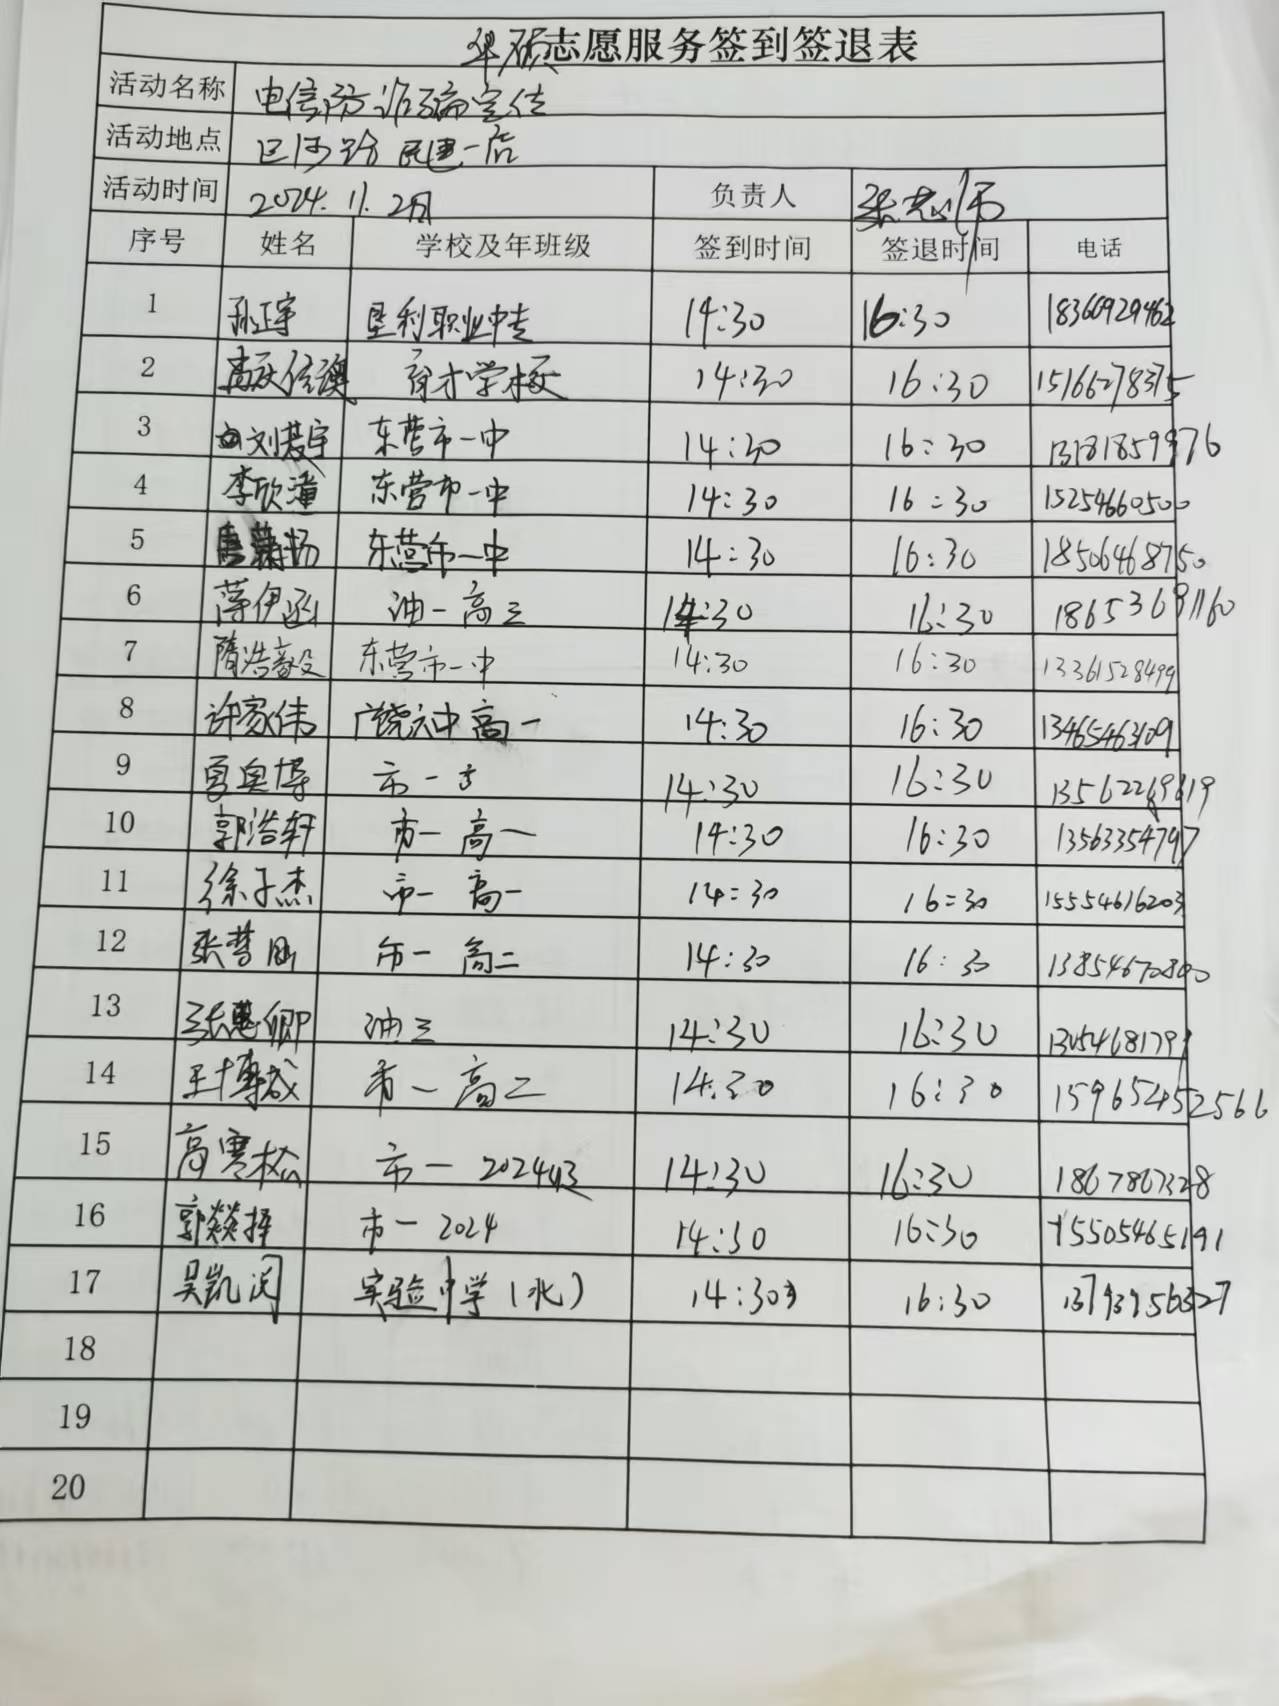 华硕志愿服务签到签退表
活动名称 电信防诈骗宣传
活动地点 民建一店
活动时间 2024.11.2日 负责人 张志伟
序号 姓名 学校及年班级 签到时间 签退时间 电话
1 孙正宇 垦利职业中专 14:30 16:30 18360929462
2 育才学校 14:30 16:30 15166278375
3 刘君宇 东营市一中 14:30 16:30 13181859976
4 李欣潼 东营市一中 14:30 16:30 15254660500
5 东营市一中 14:30 16:30 18506468750
6 薄伊函 油一高三 14:30 16:30 18653681160
7 隋浩毅 东营市一中 14:30 16:30 13361528499
8 许家伟 广饶一中高一 14:30 16:30 13465463109
9 夏奥博 市一 14:30 16:30
10 郭浩轩 市一 高一 14:30 16:30 13563354797
11 徐子杰 市一 高一 14:30 16:30 15554616203
12 市一 高二 14:30 16:30 13854670800
13 张惠卿 油三 14:30 16:30 13054681791
14 王博成 市一高二 14:30 16:30 15965452566
15 高寒松 市一 2024级 14:30 16:30 1867867328
16 郭燚择 市一 2024 14:30 16:30 15505465191
17 吴凯闵 实验中学(北) 14:30 16:30
18
19
20